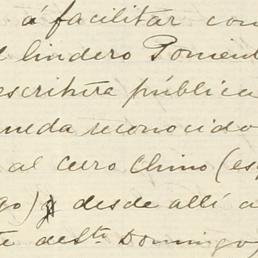 á facilitar con
lindero Ponien
escritura pública
ueda reconocido
al cerro Chino (es
go) y desde allí a
te de Sto Domingo,